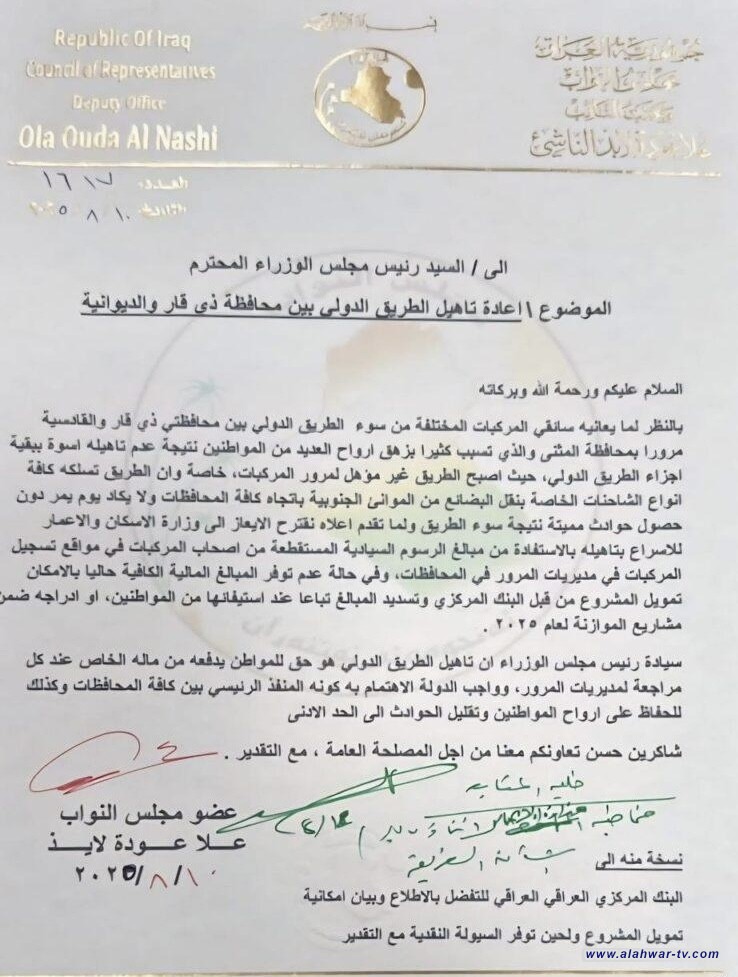 Republic Of Iraq
Council of Representatives
Deputy Office
Ola Ouda Al Nashi
جمهورية العراق
مجلس النواب
مكتب النائب
العدد: ١٦١٧
٢٠٢٥/٨/١٠
الى / السيد رئيس مجلس الوزراء المحترم
الموضوع \ اعادة تاهيل الطريق الدولي بين محافظة ذي قار والديوانية
السلام عليكم ورحمة الله وبركاته
بالنظر لما يعانيه سائقي المركبات المختلفة من سوء الطريق الدولي بين محافظتي ذي قار والقادسية
مرورا بمحافظة المثنى والذي تسبب كثيرا بزهق ارواح العديد من المواطنين نتيجة عدم تاهيله اسوة ببقية
اجزاء الطريق الدولي، حيث اصبح الطريق غير مؤهل لمرور المركبات، خاصة وان الطريق تسلكه كافة
انواع الشاحنات الخاصة بنقل البضائع من الموانئ الجنوبية باتجاه كافة المحافظات ولا يكاد يوم يمر دون
حصول حوادث مميتة نتيجة سوء الطريق ولما تقدم اعلاه نقترح الايعاز الى وزارة الاسكان والاعمار
للاسراع بتاهيله بالاستفادة من مبالغ الرسوم السيادية المستقطعة من اصحاب المركبات في مواقع تسجيل
المركبات في مديريات المرور في المحافظات، وفي حالة عدم توفر المبالغ المالية الكافية حاليا بالامكان
تمويل المشروع من قبل البنك المركزي وتسديد المبالغ تباعا عند استيفائها من المواطنين، او ادراجه ضمن
مشاريع الموازنة لعام ٢٠٢٥ .
سيادة رئيس مجلس الوزراء ان تاهيل الطريق الدولي هو حق للمواطن يدفعه من ماله الخاص عند كل
مراجعة لمديريات المرور، وواجب الدولة الاهتمام به كونه المنفذ الرئيسي بين كافة المحافظات وكذلك
للحفاظ على ارواح المواطنين وتقليل الحوادث الى الحد الادنى
شاكرين حسن تعاونكم معنا من اجل المصلحة العامة ، مع التقدير .
عضو مجلس النواب
علا عودة لايذ
٢٠٢٥/٨/١٠
نسخة منه الى
البنك المركزي العراقي العراقي للتفضل بالاطلاع وبيان امكانية
تمويل المشروع ولحين توفر السيولة النقدية مع التقدير
www.alahwar-tv.com